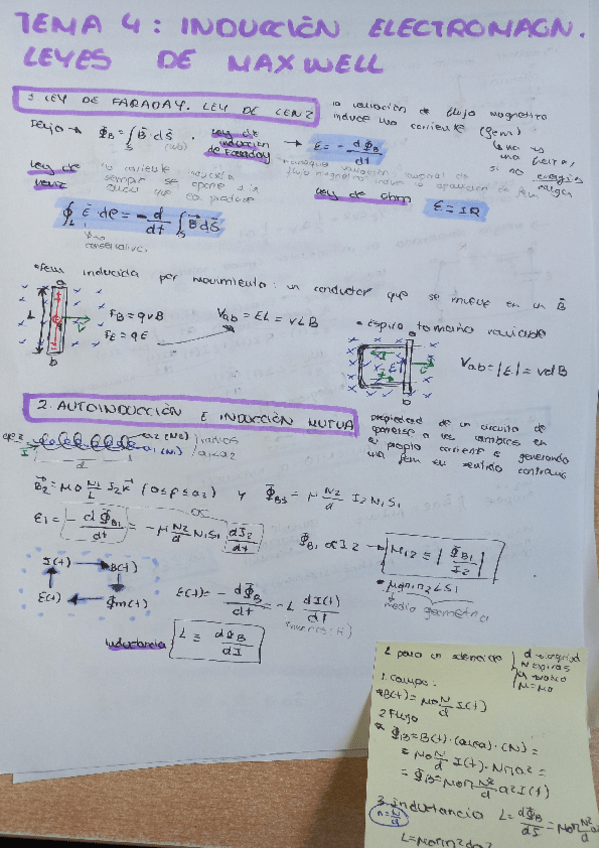 TEMA 4: INDUCCIÓN ELECTROMAGN.
LEYES DE MAXWELL
1. LEY DE FARADAY. LEY DE LENZ
la variación de flujo magnético
induce una corriente (fem)
Flujo → Φ_B = ∫_S B⃗ · dS⃗ (wb)
Ley de inducción de Faraday → ε = - dΦ_B/dt
no es una fuerza, si no energía
Ley de Lenz
la corriente inducida
siempre se opone a la
que la produce
Ley de ohm ε = IR
∮_L E⃗ dl⃗ = - d/dt ∫_S B⃗ dS⃗
no conservativo
• fem inducida por movimiento: un conductor que se mueve en un B⃗
a
L
b
F_B = qvB
F_E = qE
V_ab = EL = vLB
• espira tamaño variable
a
b
V_ab = |ε| = vdB
2. AUTOINDUCCIÓN E INDUCCIÓN MUTUA
propiedad de un circuito de
oponerse a los cambios en
su propia corriente generando
una fem en sentido contrario
a2 (N2)
a1 (N1)
a1<a2
I
d
B⃗2 = μ0 N2/L I2 k⃗ (0≤ρ≤a2) y Φ_B1 = μ N2/d I2 N1 S1
ε1 = - dΦ_B1/dt = -μ N2/d N1 S1 dI2/dt
Φ_B1 ∝ I2 → M12 ≡ |Φ_B1/I2|
• μ0 n1 n2 L S1
medio geométrica
I(t) → B(t)
ε(t) ← Φm(t)
ε(t) = - dΦ_B/dt = - L dI(t)/dt
(henrios: H)
inductancia L ≡ dΦ_B/dI
L para un solenoide
d longitud
N espiras
a radio
μ=μ0
1. Campo:
B(t) = μ0 N/d I(t)
2. Flujo
Φ_B = B(t) · (area) · (N) =
= μ0 N/d I(t) · Nπa² =
= Φ_B = μ0π N²/d a² I(t)
3. inductancia L = dΦ_B/dI = μ0π N²/d a²
n = N/d
L = μ0πn²da²